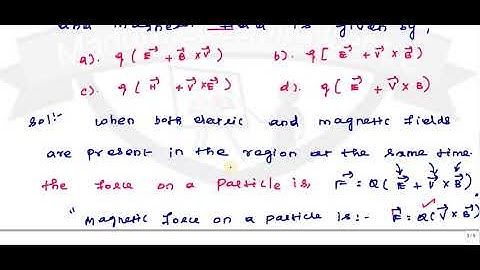 and magnetic field is given by,
a). q ( E⃗ + B⃗ × V⃗ ) b). q [ E⃗ + V⃗ × B⃗ )
c). q ( H⃗ + V⃗ × E⃗ ) d). q ( E⃗ + V⃗ × B )
Sol:- When both electric and magnetic fields
are present in the region at the same time.
the force on a particle is F⃗ = Q ( E⃗ + V⃗ × B⃗ )
" Magnetic force on a particle is:- F⃗ = Q ( V⃗ × B⃗ ).